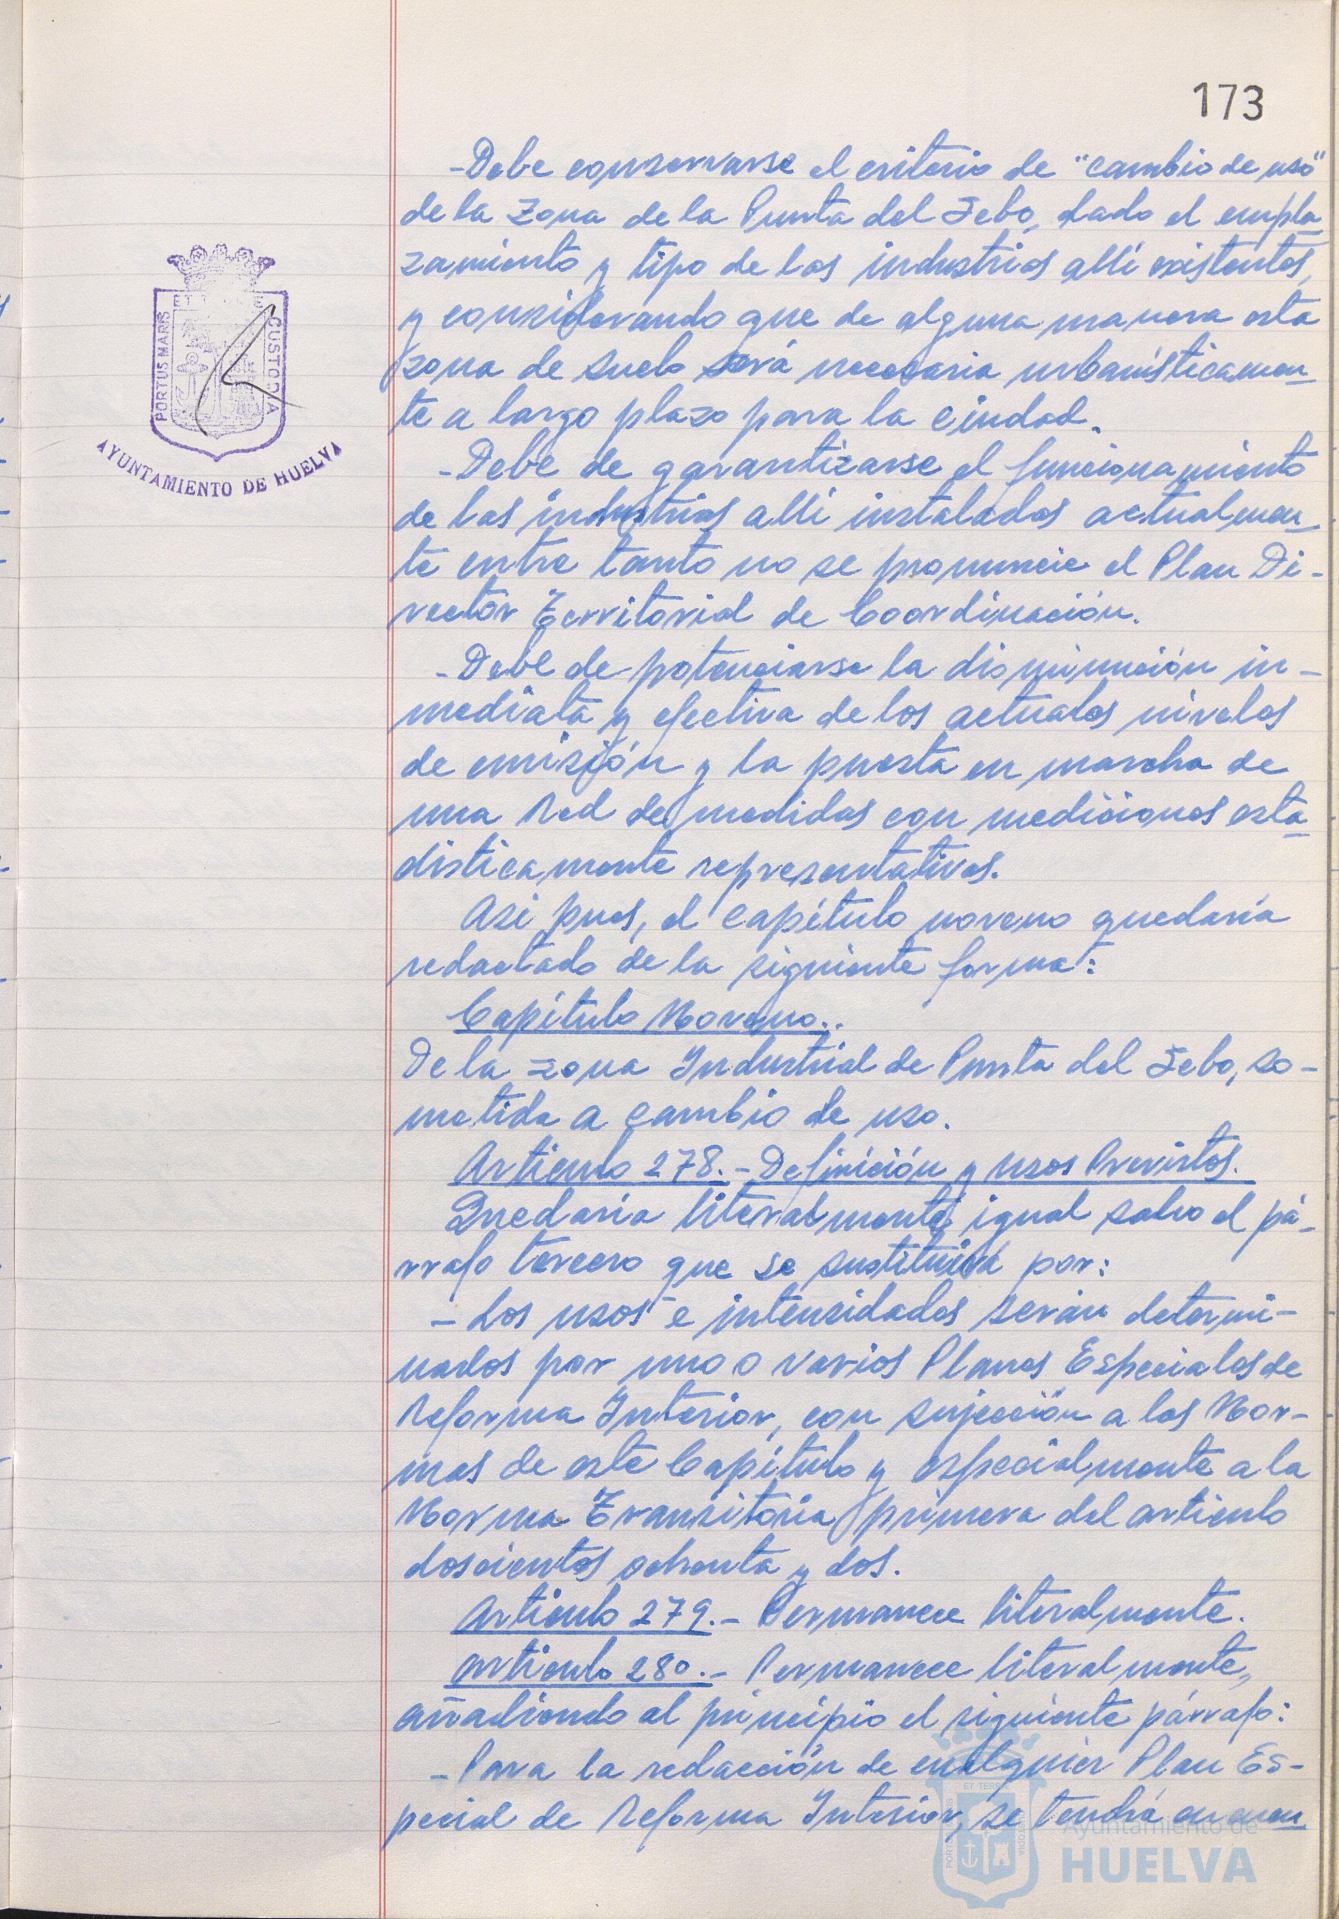 173
-Debe conservarse el criterio de "cambio de uso"
de la Zona de la Punta del Sebo, dado el empla
zamiento y tipo de las industrias allí existentes,
y considerando que de alguna manera esta
zona de suelo será necesaria urbanísticamen
te a largo plazo para la ciudad.
-Debe de garantizarse el funcionamiento
de las industrias allí instaladas actualmen
te entre tanto no se pronuncie el Plan Di-
rector Territorial de Coordinación.
-Debe de potenciarse la disminución in-
mediata y efectiva de los actuales niveles
de emisión y la puesta en marcha de
una Red de medidas con mediciones esta
disticamente representativas.
Asi pues, el capítulo noveno quedaría
redactado de la siguiente forma:
Capítulo Noveno..
De la zona Industrial de Punta del Sebo, so-
metida a cambio de uso.
Artículo 278.- Definición y usos Previstos.
Quedaría literalmente igual salvo el pá-
rrafo tercero que se sustituirá por:
- Los usos e intensidades serán determi-
nados por uno o varios Planes Especiales de
Reforma Interior, con sujección a las Nor-
mas de este Capítulo y especialmente a la
Norma Transitoria primera del artículo
doscientos ochenta y dos.
Artículo 279.- Permanece literalmente.
Artículo 280.- Permanece literalmente,
añadiendo al principio el siguiente párrafo:
- Para la redacción de cualquier Plan Es-
pecial de Reforma Interior, se tendrá en cuen
PORTUS MARIS
ET TERRE
CUSTODIA
AYUNTAMIENTO DE HUELVA
ET TERRE
PORTUS MARIS
CUSTODIA
Ayuntamiento de
HUELVA